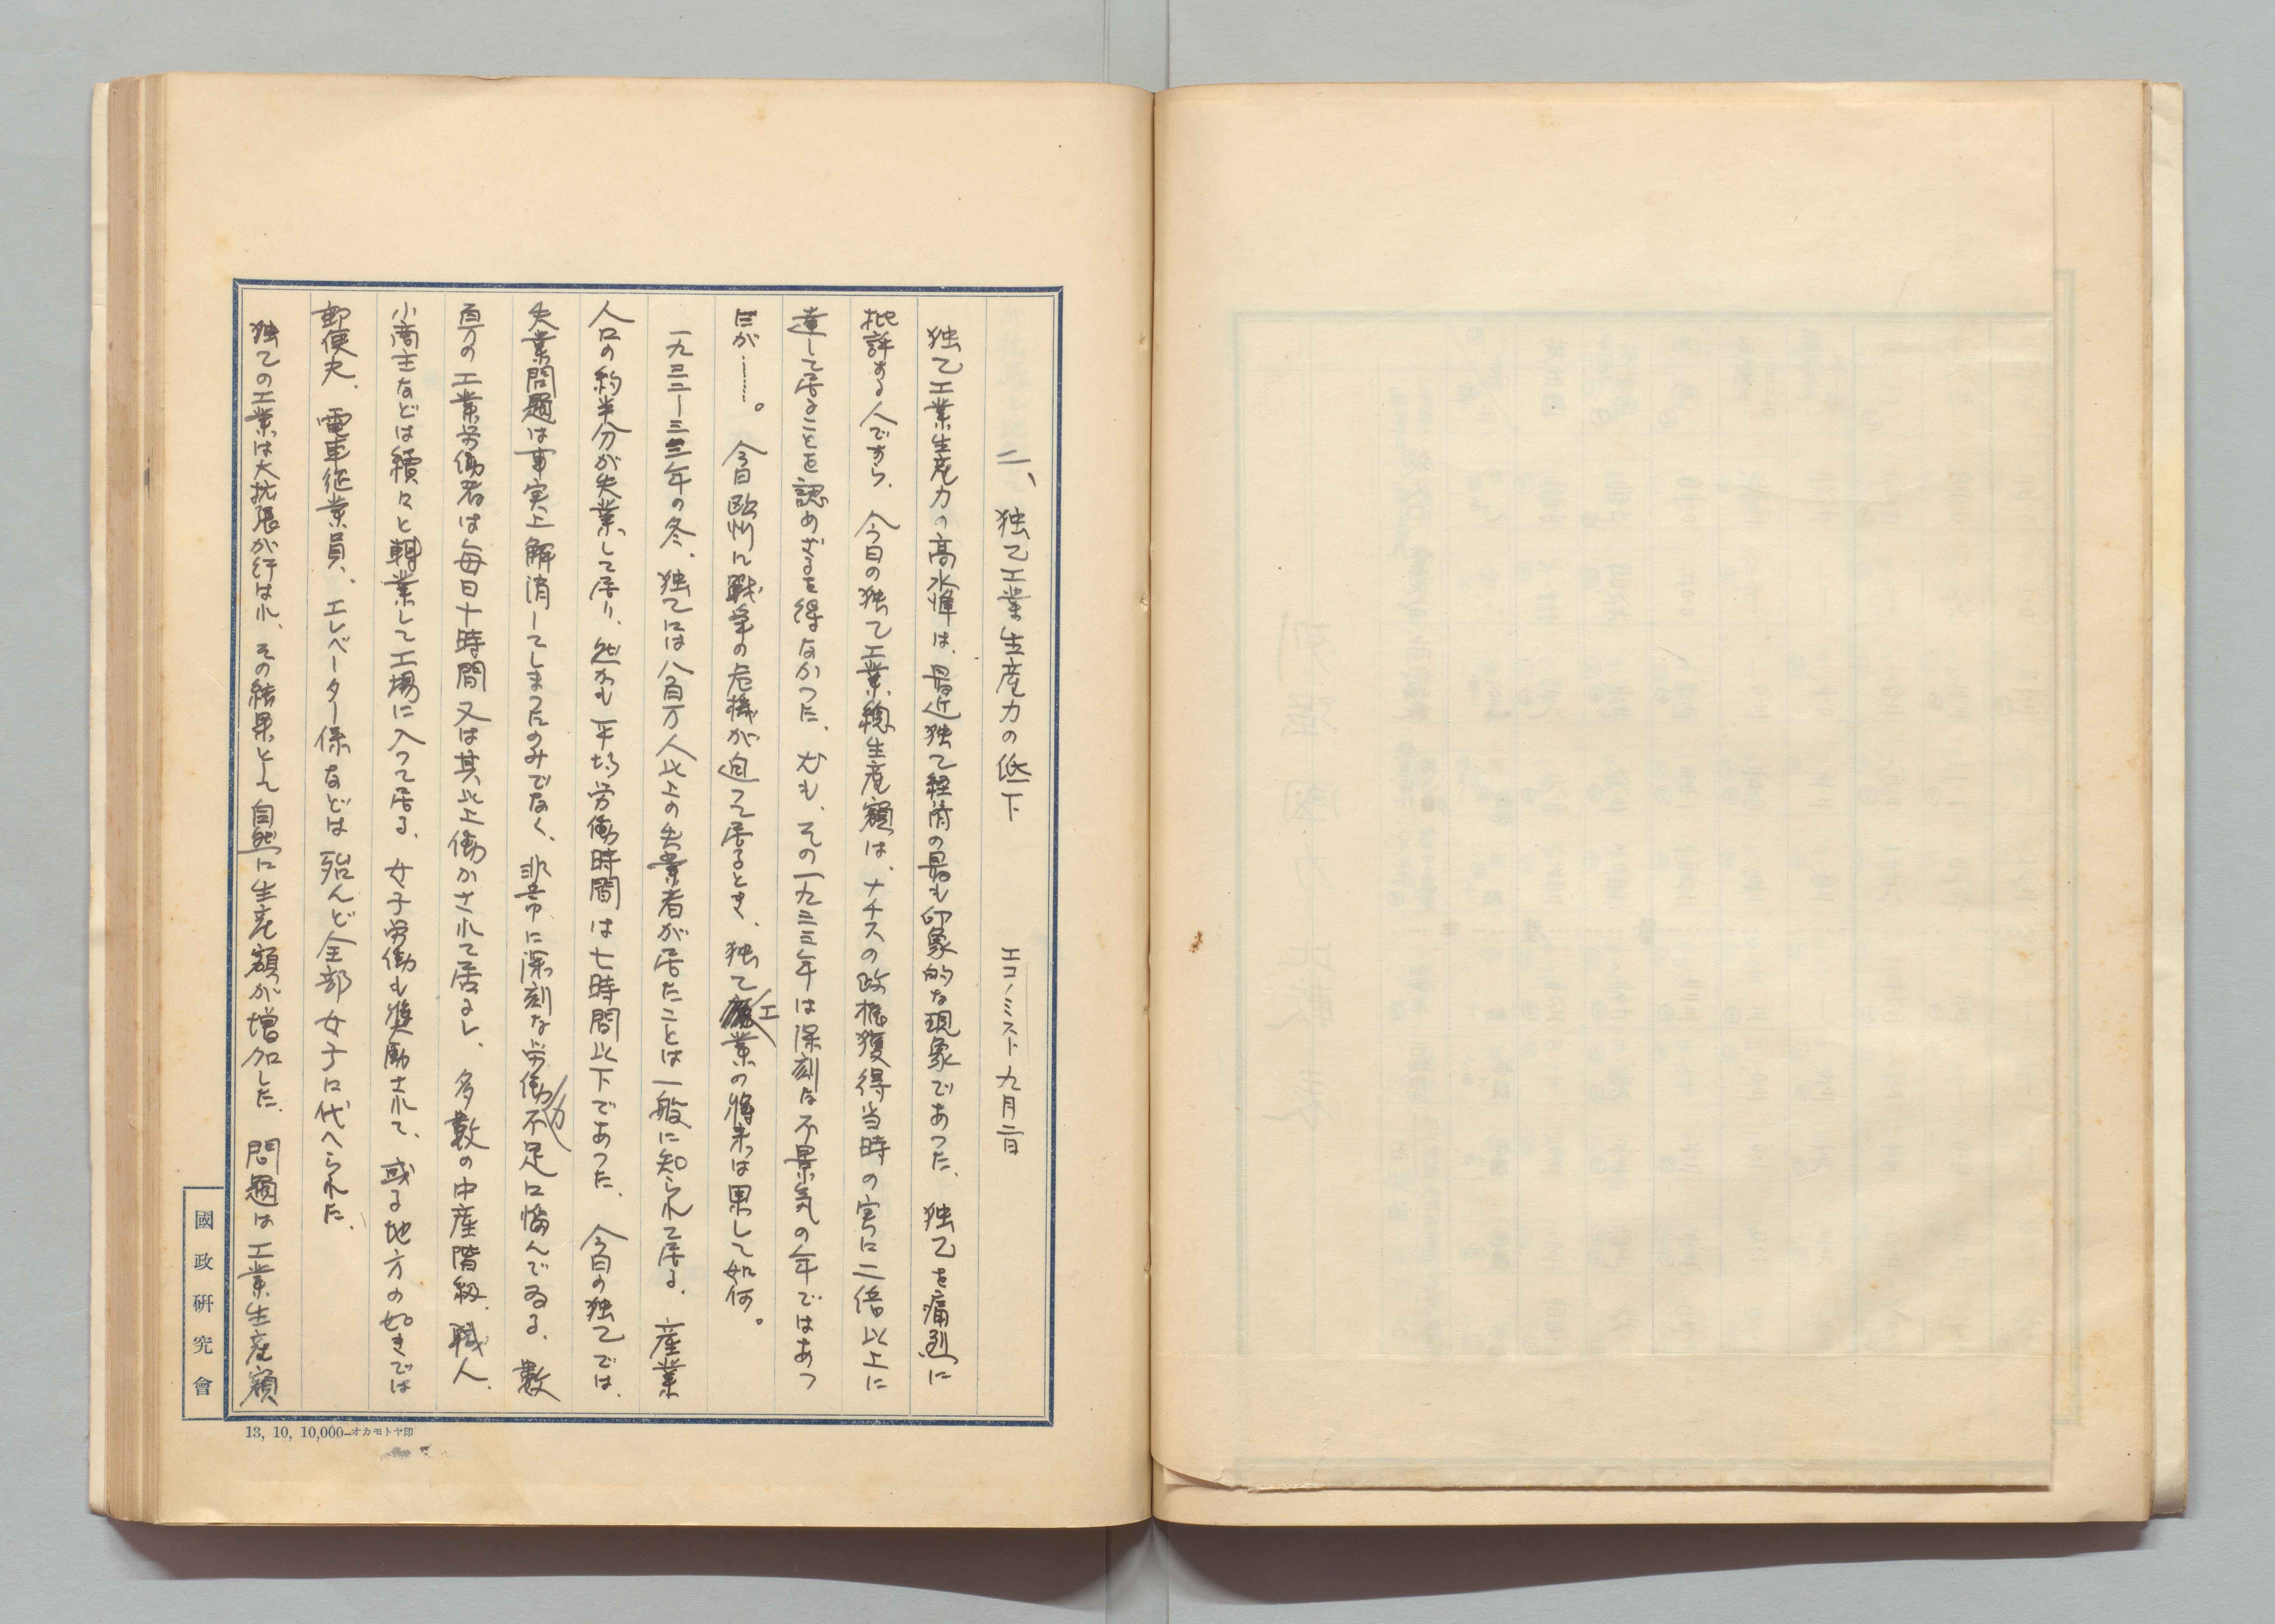 二、独乙工業生産力の低下　エコノミスト九月二日
独乙工業生産力の高水準は、最近独乙経済の最も印象的な現象であつた、独乙を痛烈に
批評する人ですら、今日の独乙工業総生産額は、ナチスの政権獲得当時の実に二倍以上に
達して居ることを認めざるを得なかつた、尤も、その一九三三年は深刻な不景気の年ではあつ
たが……。今日欧州に戦争の危機が迫つて居るとき、独乙工業の将来は果して如何。
一九三二―三三年の冬、独乙には八百万人以上の失業者が居たことは一般に知られて居る、産業
人口の約半分が失業して居り、然かも平均労働時間は七時間以下であつた、今日の独乙では、
失業問題は事実上解消してしまつたのみでなく、非常に深刻な労働力不足に悩んでゐる、数
百万の工業労働者は毎日十時間又は其以上働かされて居るし、多数の中産階級、職人、
小商主などは続々と轉業して工場に入つて居る、女子労働も奨励されて、或る地方の如きでは
郵便夫、電車従業員、エレベーター係などは殆んど全部女子に代へられた、
独乙の工業は大拡張が行はれ、その結果として自然に生産額が増加した、問題は工業生産額
國政研究會
13, 10, 10,000―オカモトヤ印